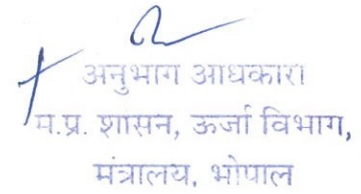 अनुभाग आधकारा
म.प्र. शासन, ऊर्जा विभाग,
मंत्रालय, भोपाल